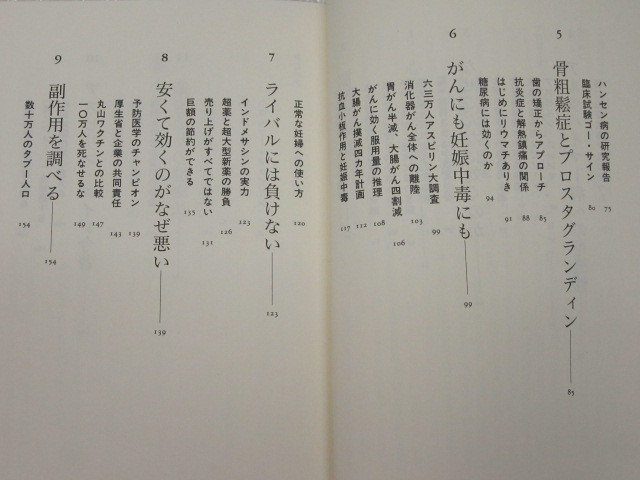 ハンセン病の研究報告 75
臨床試験ゴー・サイン 80
5 骨粗鬆症とプロスタグランディン 85
歯の矯正からアプローチ 85
抗炎症と解熱鎮痛の関係 88
はじめにリウマチありき 91
糖尿病には効くのか 94
6 がんにも妊娠中毒にも 99
六三万人アスピリン大調査 99
消化器がん全体への離陸 103
胃がん半減、大腸がん四割減 106
がんに効く服用量の推理 108
大腸がん撲滅四カ年計画 112
抗血小板作用と妊娠中毒 117
正常な妊婦への使い方 120
7 ライバルには負けない 123
インドメサシンの実力 123
超薬と超大型新薬の勝負 126
売り上げがすべてではない 131
巨額の節約ができる 135
8 安くて効くのがなぜ悪い 139
予防医学のチャンピオン 139
厚生省と企業の共同責任 143
丸山ワクチンとの比較 147
一〇万人を死なせるな 149
9 副作用を調べる 154
数十万人のタブー人口 154